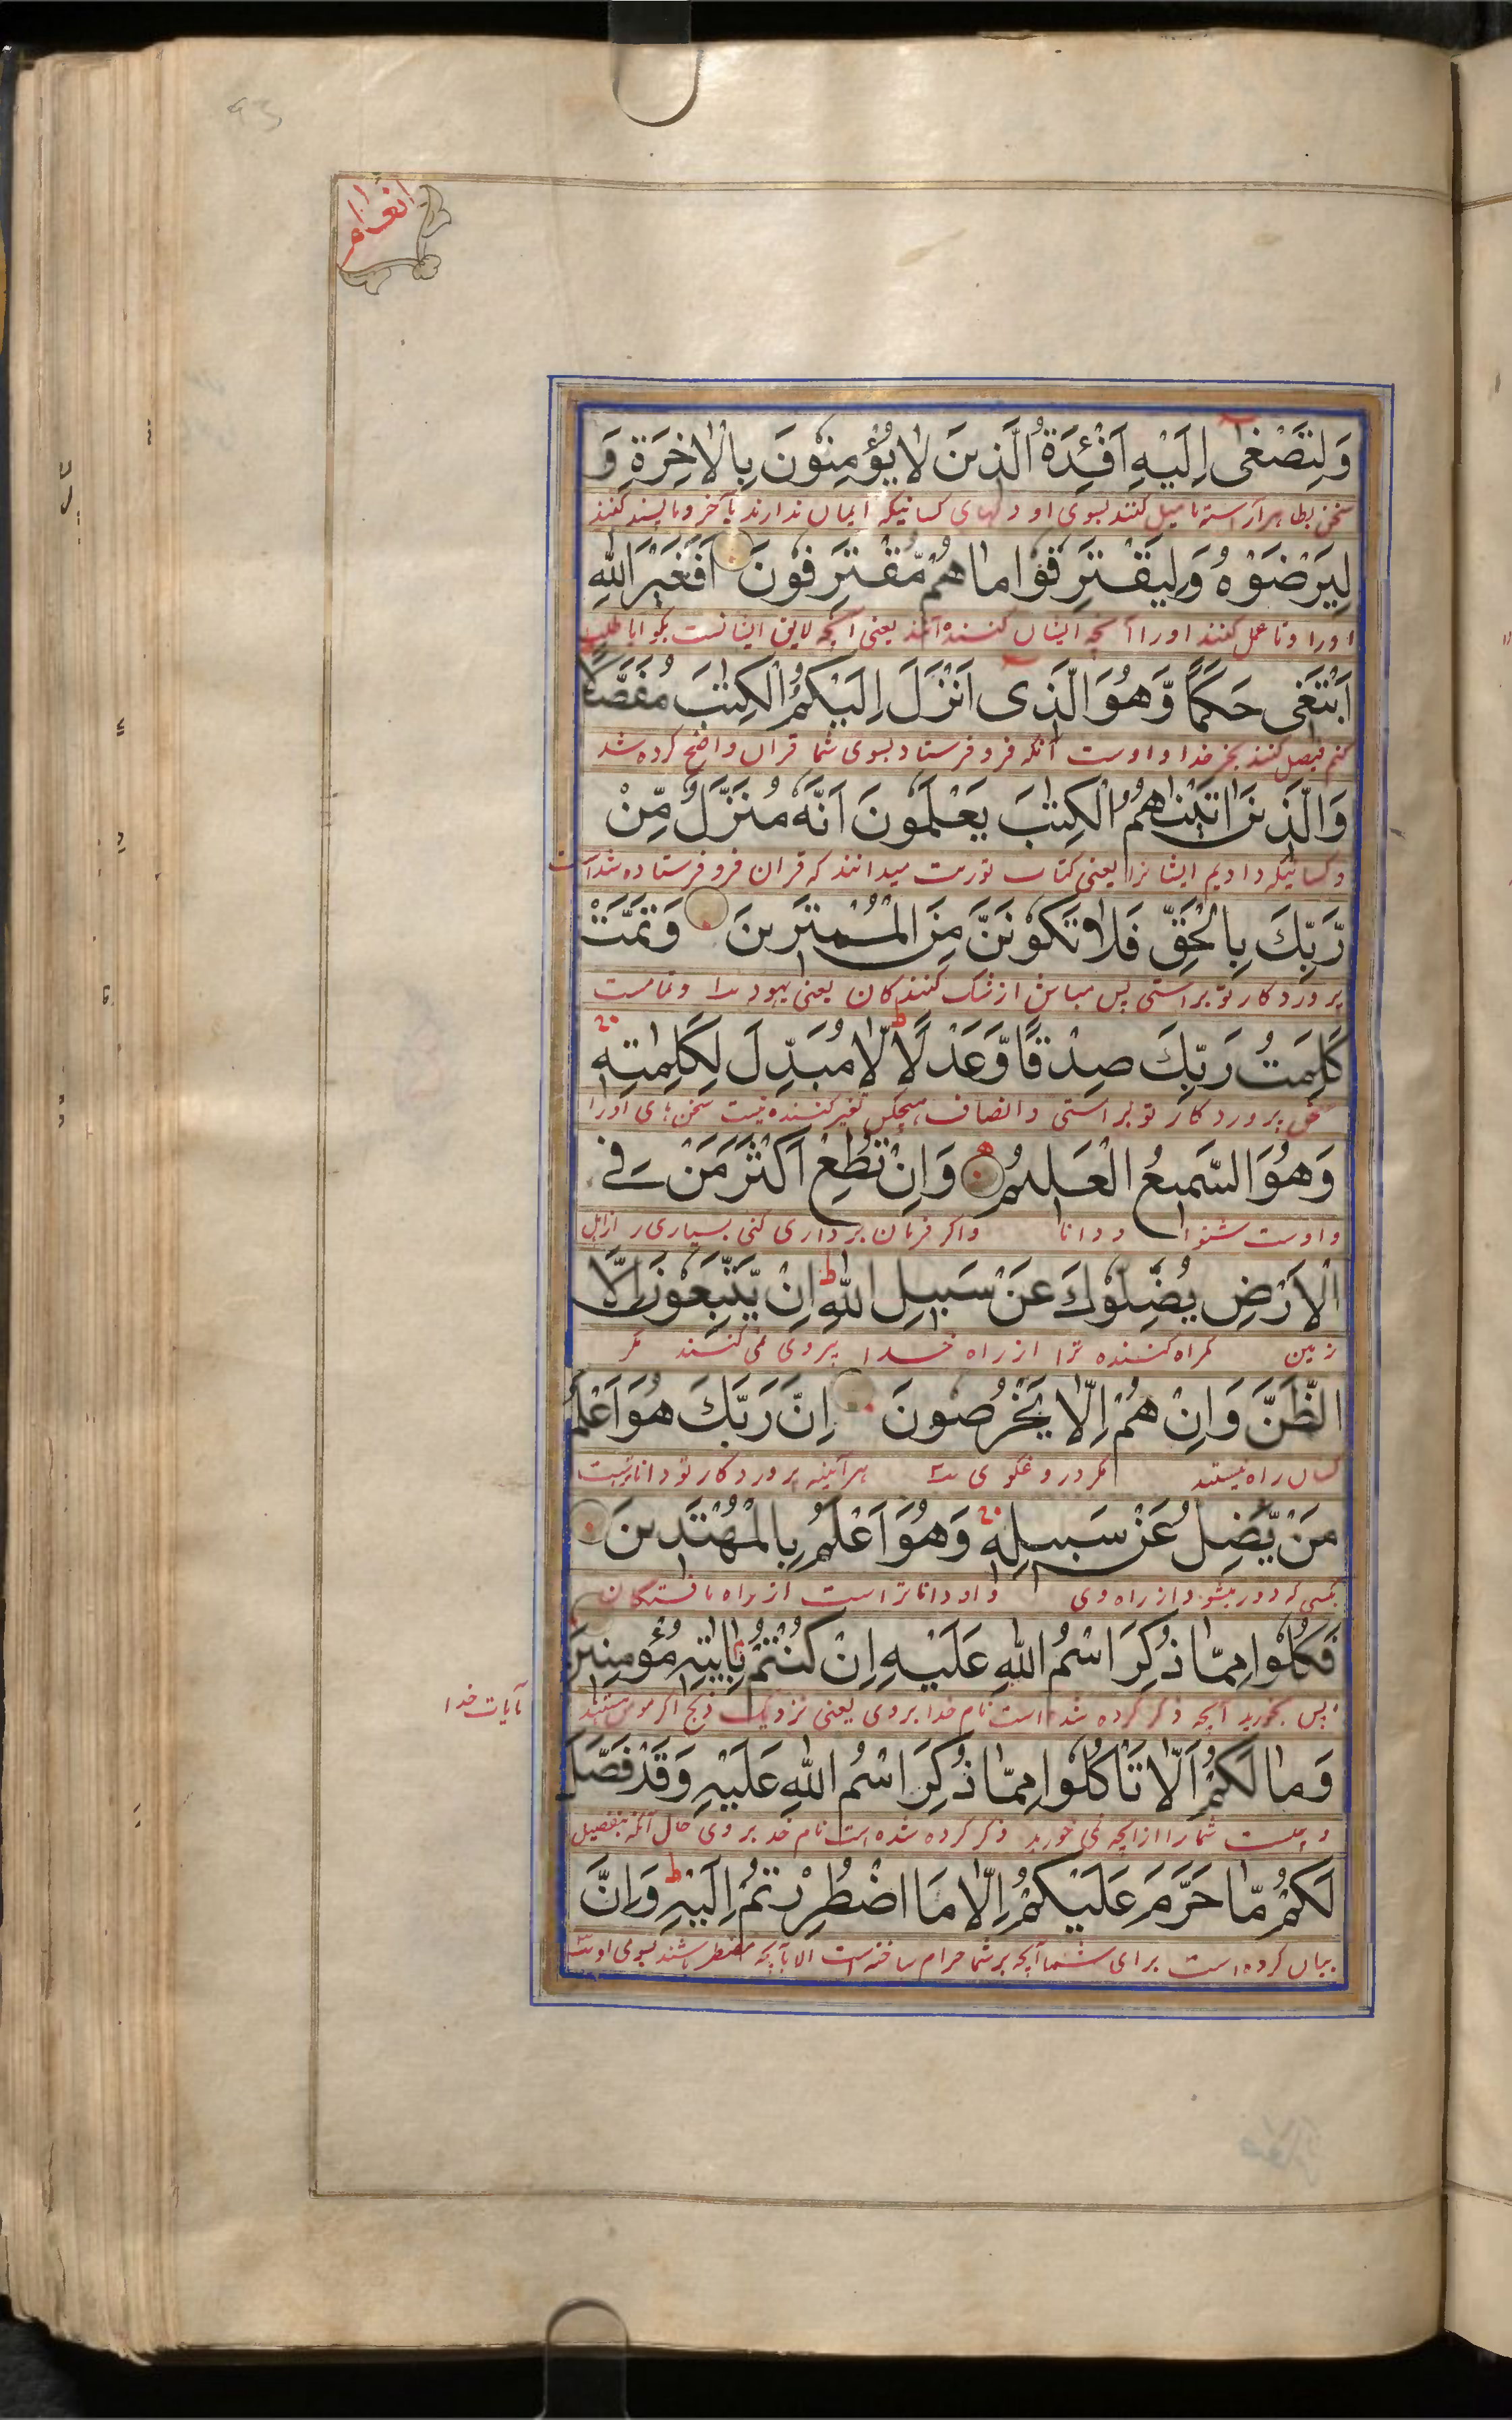 93
انعام
وَلِتَصْغٰى اِلَيْهِ اَفْئِدَةُ الَّذِينَ لَا يُؤْمِنُونَ بِالْاٰخِرَةِ وَ
سخن بظاهر آراسته تا میل کنند بسوی او دلهای کسانیکه ایمان ندارند بآخر و تا پسند کنند
لِيَرْضَوْهُ وَلِيَقْتَرِفُوْا مَا هُمْ مُّقْتَرِفُوْنَ اَفَغَيْرَ اللّٰهِ
اورا و تا عمل کنند اورا آنچه ایشان کننده‌اند یعنی آنچه لایق ایشانست بگو ایا طلب
اَبْتَغِى حَكَمًا وَّهُوَ الَّذِى اَنْزَلَ اِلَيْكُمُ الْكِتٰبَ مُفَصَّلًا
کنم فیصل کننده بجز خدا و اوست آنکه فرو فرستاد بسوی شما قران واضح کرده شد
وَالَّذِينَ اٰتَيْنٰهُمُ الْكِتٰبَ يَعْلَمُوْنَ اَنَّهٗ مُنَزَّلٌ مِّنْ
و کسانیکه دادیم ایشانرا یعنی کتاب توریت میدانند که قران فرو فرستاده شد است
رَّبِّكَ بِالْحَقِّ فَلَا تَكُوْنَنَّ مِنَ الْمُمْتَرِينَ وَتَمَّتْ
پروردکار تو براستی پس مباش از شک کنندکان یعنی یهود و تمامست
كَلِمَتُ رَبِّكَ صِدْقًا وَّعَدْلًا ط لَا مُبَدِّلَ لِكَلِمٰتِهٖ
سخن پروردکار تو براستی و انصاف هیچکس تغیر کننده نیست سخن‌های اورا
وَهُوَ السَّمِيعُ الْعَلِيمُ وَاِنْ تُطِعْ اَكْثَرَ مَنْ فِى
و اوست شنوا و دانا و اکر فرمان برداری کنی بسیاری را از اهل
الْاَرْضِ يُضِلُّوْكَ عَنْ سَبِيلِ اللّٰهِ ط اِنْ يَّتَّبِعُوْنَ اِلَّا
زمین کمراه کننده ترا از راه خدا پیروی نمی کنند مکر
الظَّنَّ وَاِنْ هُمْ اِلَّا يَخْرُصُوْنَ اِنَّ رَبَّكَ هُوَ اَعْلَمُ
کمان راه نیستند مکر دروغکوی هرآینه پروردکار تو داناتر است
مَنْ يَّضِلُّ عَنْ سَبِيلِهٖ وَهُوَ اَعْلَمُ بِالْمُهْتَدِينَ
بکسی که دور میشود از راه وی و او داناتر است از راه یافتکان
فَكُلُوْا مِمَّا ذُكِرَ اسْمُ اللّٰهِ عَلَيْهِ اِنْ كُنْتُمْ بِاٰيٰتِهٖ مُؤْمِنِينَ
پس بخورید آنچه ذکر کرده شد است نام خدا بروی یعنی نزدیک ذبح اکر مومن هستید
بآیات خدا
وَمَا لَكُمْ اَلَّا تَاْكُلُوْا مِمَّا ذُكِرَ اسْمُ اللّٰهِ عَلَيْهِ وَقَدْ فَصَّلَ
و چیست شمارا از انچه نمی خورید ذکر کرده شده است نام خدا بروی حال آنکه بتفصیل
لَكُمْ مَّا حَرَّمَ عَلَيْكُمْ اِلَّا مَا اضْطُرِرْتُمْ اِلَيْهِ ط وَاِنَّ
بیان کرده است برای شما آنچه بر شما حرام ساخته است الا بآنچه مضطر باشند بسوی او